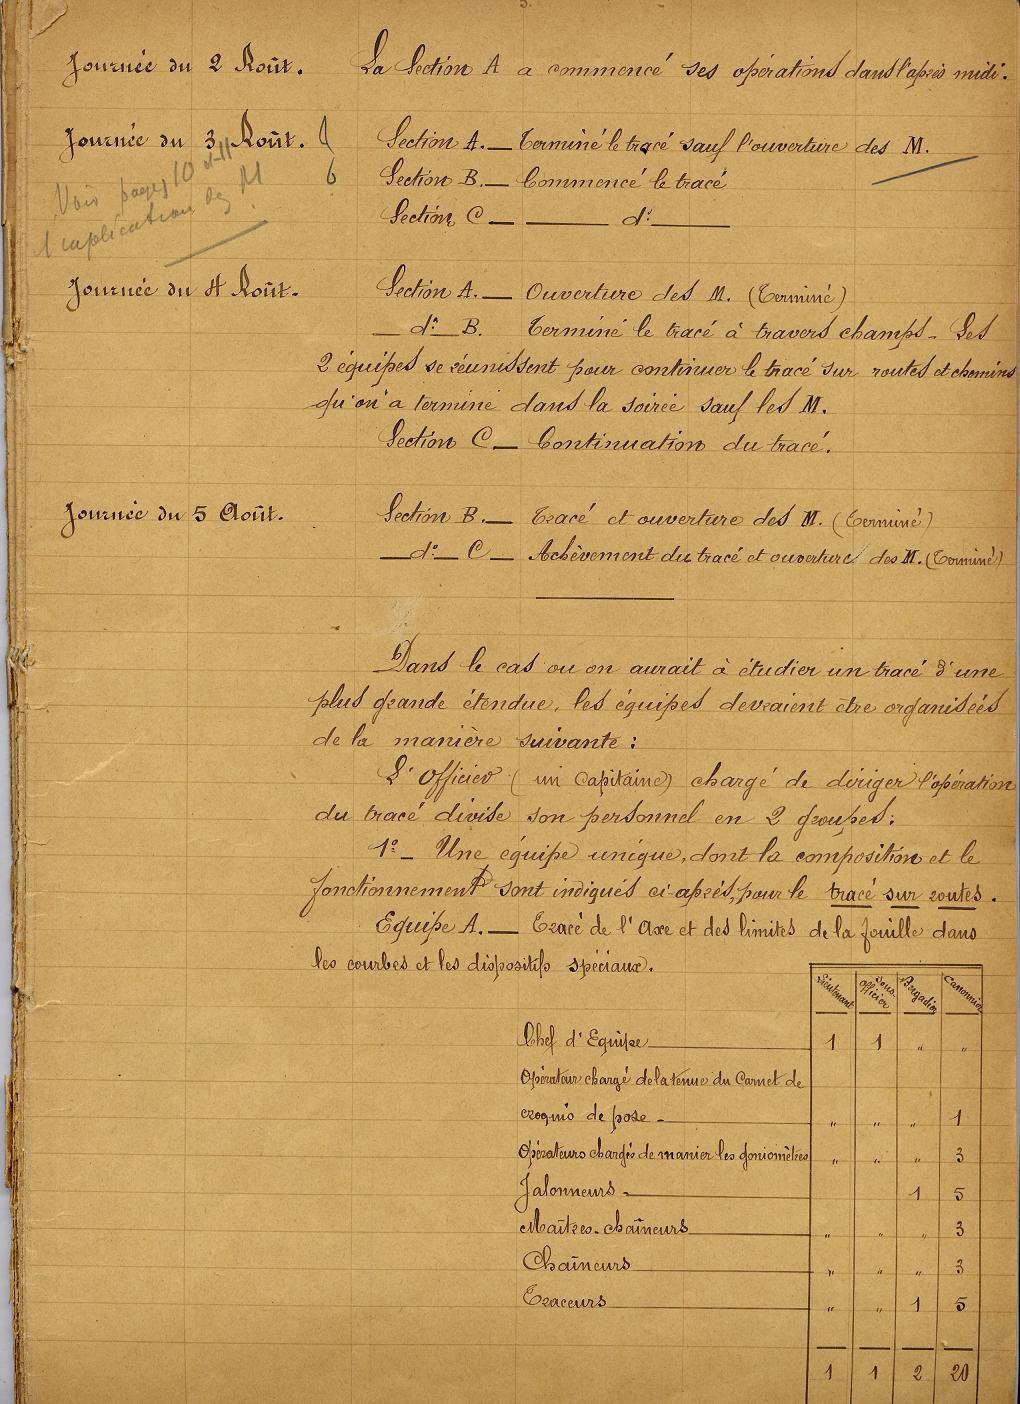 3.
Journée du 2 Août. La Section A a commencé ses opérations dans l'après midi.
Journée du 3 Août. Section A. — Terminé le tracé sauf l'ouverture des M.
Voir pages 10 et 11
l'explication des M
6
Section B. — Commencé le tracé
Section C — d°
Journée du 4 Août. Section A. — Ouverture des M. (Terminé)
— d° B. Terminé le tracé à travers champs - Les
2 équipes se réunissent pour continuer le tracé sur routes et chemins
qu'on a terminé dans la soirée sauf les M.
Section C — Continuation du tracé.
Journée du 5 Août. Section B. — Tracé et ouverture des M. (Terminé)
— d° C — Achèvement du tracé et ouverture des M. (Terminé)
Dans le cas ou on aurait à étudier un tracé d'une
plus grande étendue, les équipes devraient être organisées
de la manière suivante :
L'Officier (un Capitaine) chargé de diriger l'opération
du tracé divise son personnel en 2 groupes :
1° - Une équipe unique, dont la composition et le
fonctionnement sont indiqués ci-après, pour le tracé sur routes.
Equipe A. — Tracé de l'Axe et des limites de la fouille dans
les courbes et les dispositifs spéciaux.
Lieutenant Sous-Officier Brigadier Canonnier
Chef d'Equipe 1 1 " "
Opérateur chargé de la tenue du Carnet de
croquis de pose - " " " 1
Opérateurs chargés de manier les goniomètres " " " 3
Jalonneurs - 1 5
Maîtres-chaîneurs " " " 3
Chaîneurs " " " 3
Traceurs " " 1 5
1 1 2 20